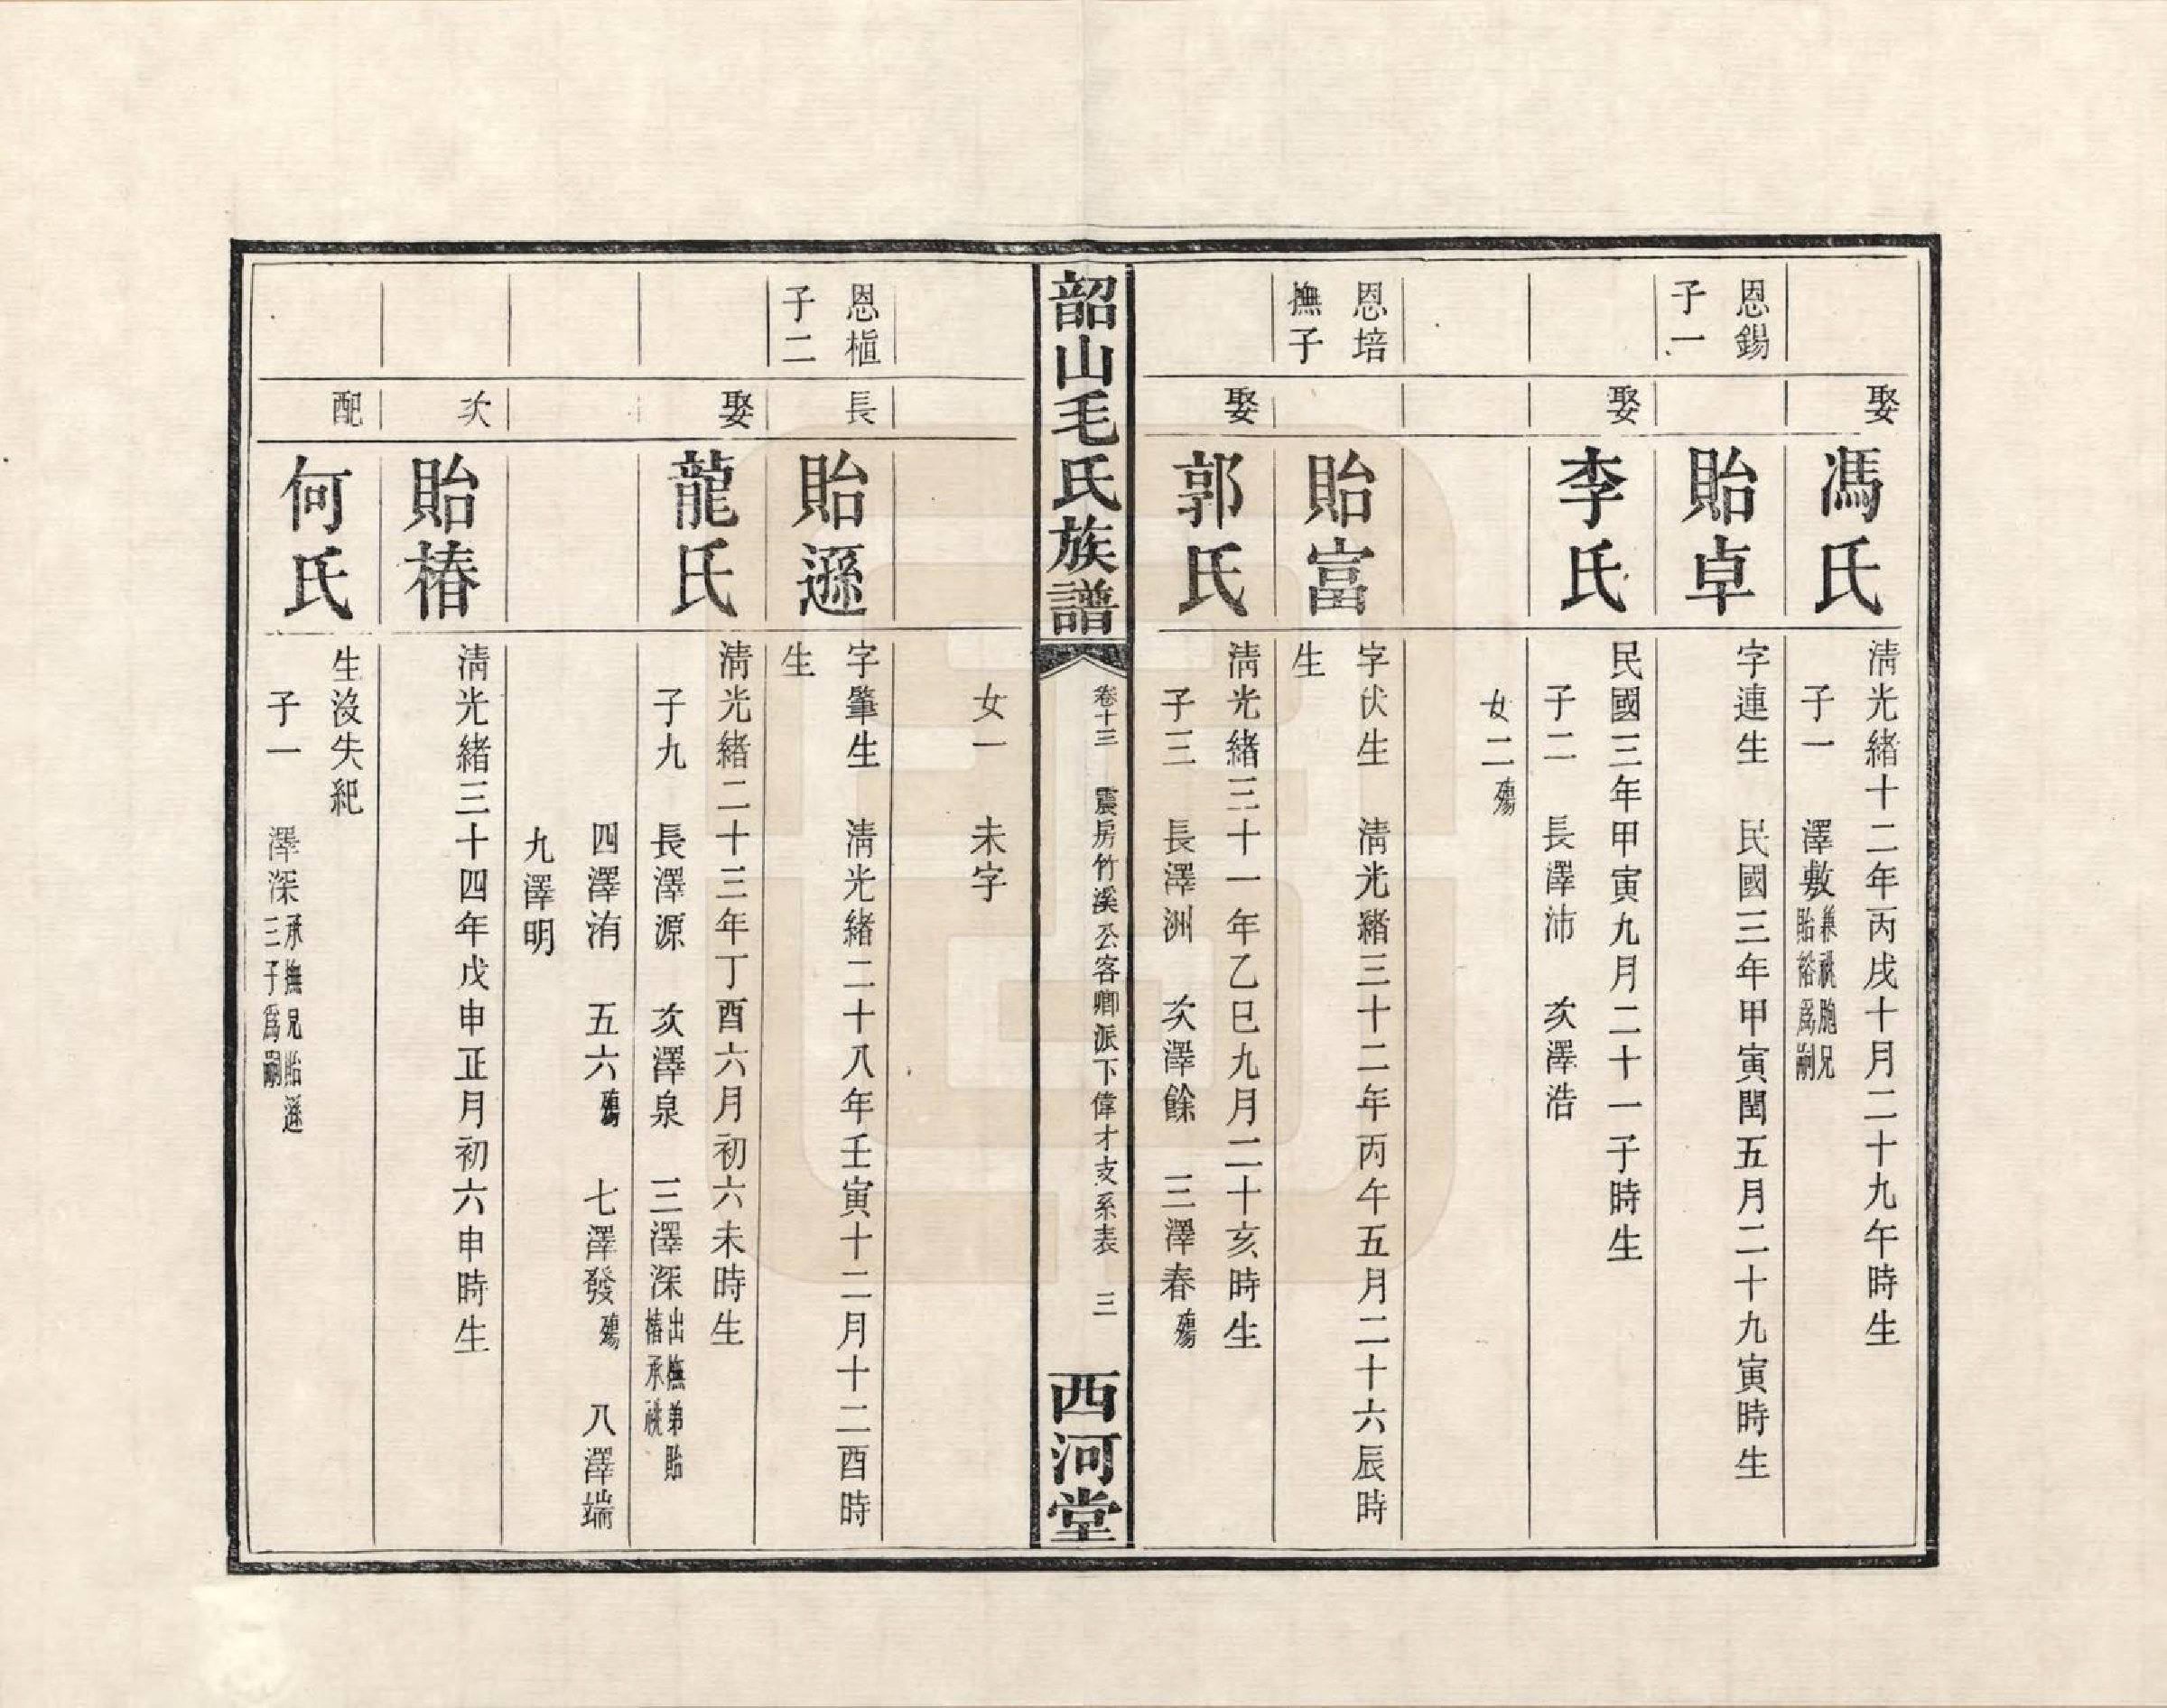 娶
馮氏
清光緒十二年丙戌十月二十九午時生
子一 澤敷兼祧胞兄
貽裕爲嗣
恩錫
子一
貽卓
字連生 民國三年甲寅閏五月二十九寅時生
娶
李氏
民國三年甲寅九月二十一子時生
子二 長澤沛 次澤浩
女二殤
恩培
撫子
貽富
字伏生 清光緒三十二年丙午五月二十六辰時
生
娶
郭氏
清光緒三十一年乙巳九月二十亥時生
子三 長澤洲 次澤餘 三澤春殤
韶山毛氏族譜
卷十三 震房竹溪公客卿派下偉才支系表 三
西河堂
女一 未字
恩植
子二
長
貽遜
字肇生 清光緒二十八年壬寅十二月十二酉時
生
娶
龍氏
清光緒二十三年丁酉六月初六未時生
子九 長澤源 次澤泉 三澤深出撫弟貽
椿承祧
四澤洧 五六殤 七澤發殤 八澤端
九澤明
次
貽椿
清光緒三十四年戊申正月初六申時生
配
何氏
生沒失紀
子一 澤深承撫兄貽遜
三子爲嗣